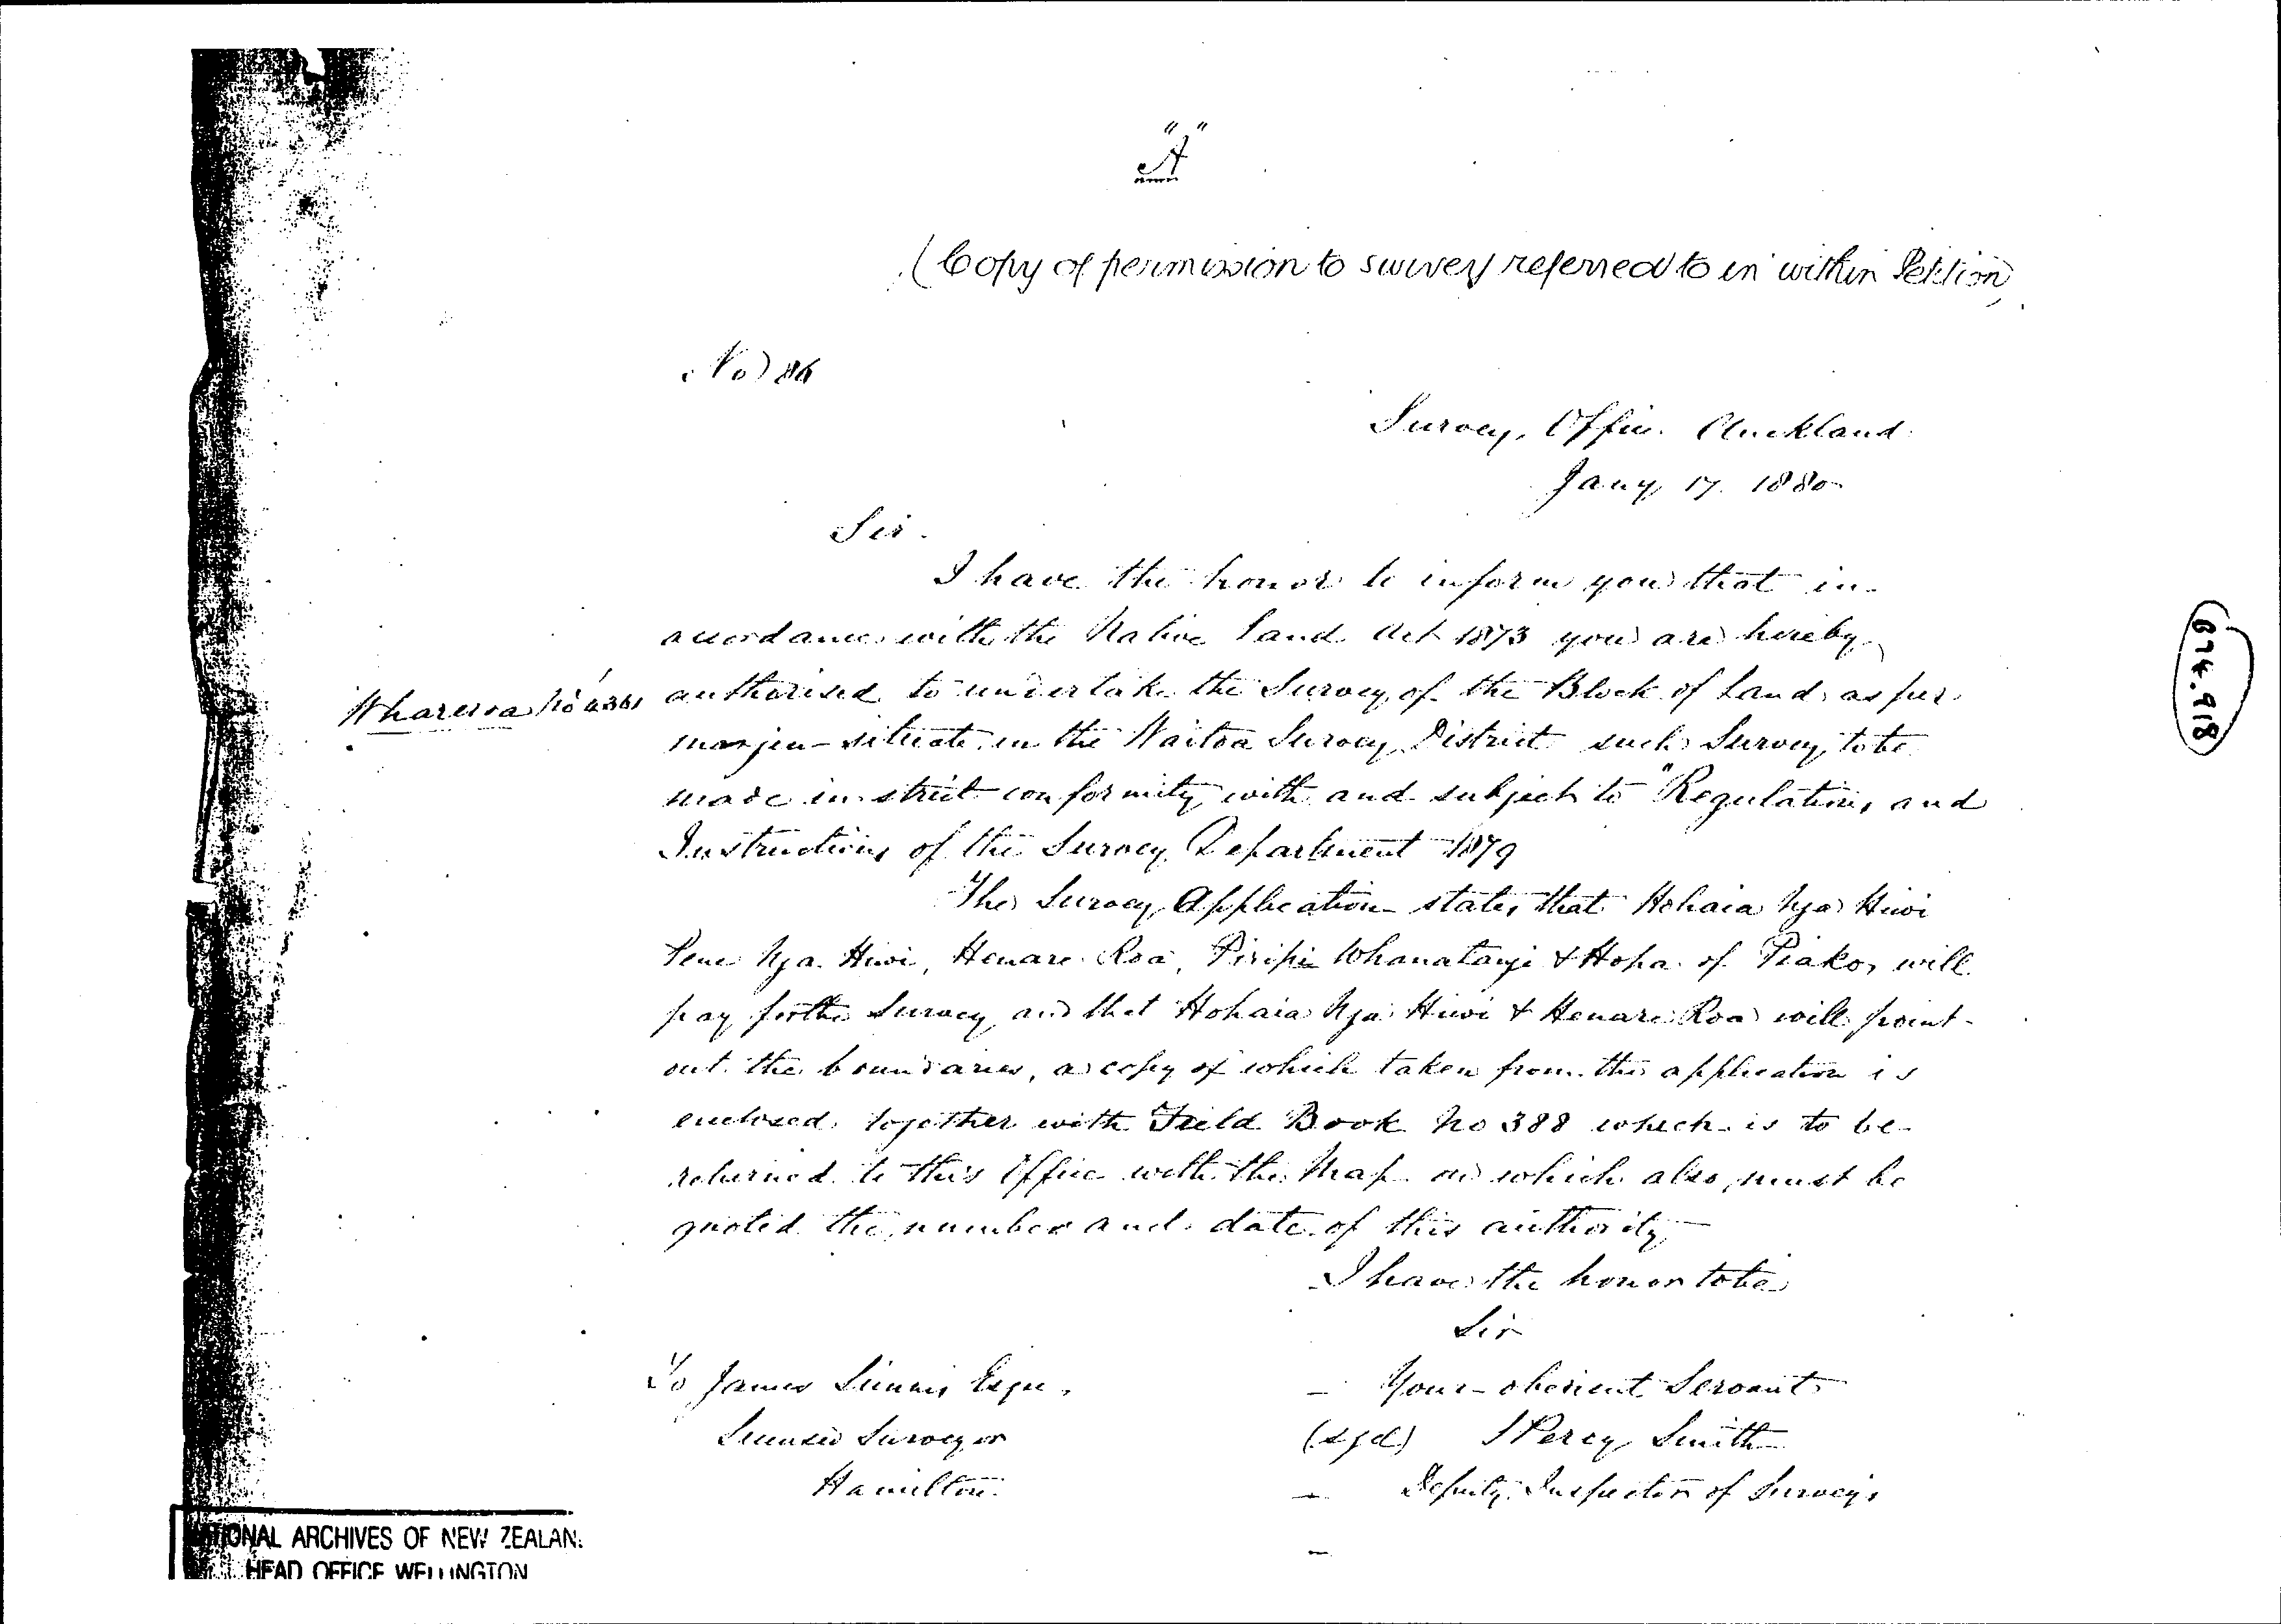 "A"
(Copy of permission to survey referred to in within Petition)
No 86
Survey Office Auckland
Jany 17. 1880
Sir.
I have the honor to inform you that in
accordance with the Native Land Act 1873 you are hereby
authorised to undertake the Survey of the Block of Land as per
Whareroa No
margin situate in the Waitoa Survey District such Survey to be
made in strict conformity with and subject to "Regulations and
Instructions of the Survey Department 1879
The Survey Application states that Hohaia Nga Hiwi
Pene Nga Hiwi, Henare Roa, Piripi Whanatangi & Hopa of Piako, will
pay for the Survey and that Hohaia Nga Hiwi & Henare Roa will point
out the boundaries, a copy of which taken from the application is
enclosed together with Field Book No 388 which is to be
returned to this Office with the Map on which also must be
quoted the number and date of this authority
I have the honor to be
Sir
To James Esqre.
Your obedient Servant
Licensed Surveyor
(sgd) S Percy Smith
Hamilton.
Deputy Inspector of Surveys
874.918
IONAL ARCHIVES OF NEW ZEALAN
HEAD OFFICE WELLINGTON